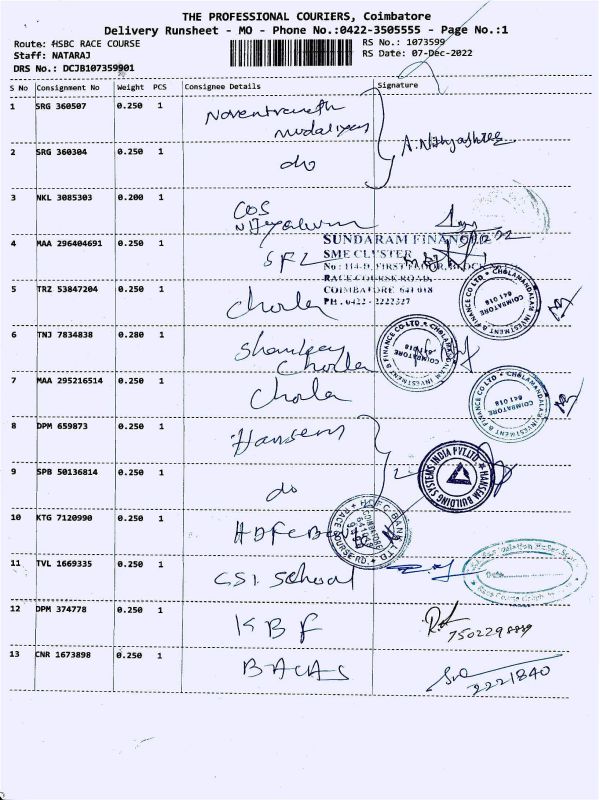 THE PROFESSIONAL COURIERS, Coimbatore
Delivery Runsheet - MO - Phone No.:0422-3505555 - Page No.:1
Route: HSBC RACE COURSE
RS No.: 1073599
Staff: NATARAJ
RS Date: 07-Dec-2022
DRS No.: DCJB107359901
S No Consignment No Weight PCS Consignee Details Signature
1 SRG 360507 0.250 1
2 SRG 360304 0.250 1 do
3 NKL 3085303 0.200 1 COS
SUNDARAM FINANCE
4 MAA 296404691 0.250 1 SFL
SME CLUSTER
No : 114-D, FIRST FLOOR, BLOCK
RACE COURSE ROAD,
COIMBATORE 641 018
PH . 0422 - 2222527
5 TRZ 53847204 0.250 1 Chola
CHOLAMANDALAM INVESTMENT & FINANCE CO LTD
COIMBATORE 641 018
6 TNJ 7834838 0.280 1 Chola
CHOLAMANDALAM INVESTMENT & FINANCE CO LTD
COIMBATORE 641 018
7 MAA 295216514 0.250 1 Chola
CHOLAMANDALAM INVESTMENT & FINANCE CO LTD
COIMBATORE 641 018
8 DPM 659873 0.250 1 Hansem
HANSEM BUILDING SYSTEMS INDIA PVT LTD
9 SPB 50136814 0.250 1 do
10 KTG 7120990 0.250 1 HDFC Bank
HDFC BANK LTD. RACE COURSE RD.
11 TVL 1669335 0.250 1 CSI School
Date
12 DPM 374778 0.250 1 KBF
13 CNR 1673898 0.250 1 BACAS
2221840